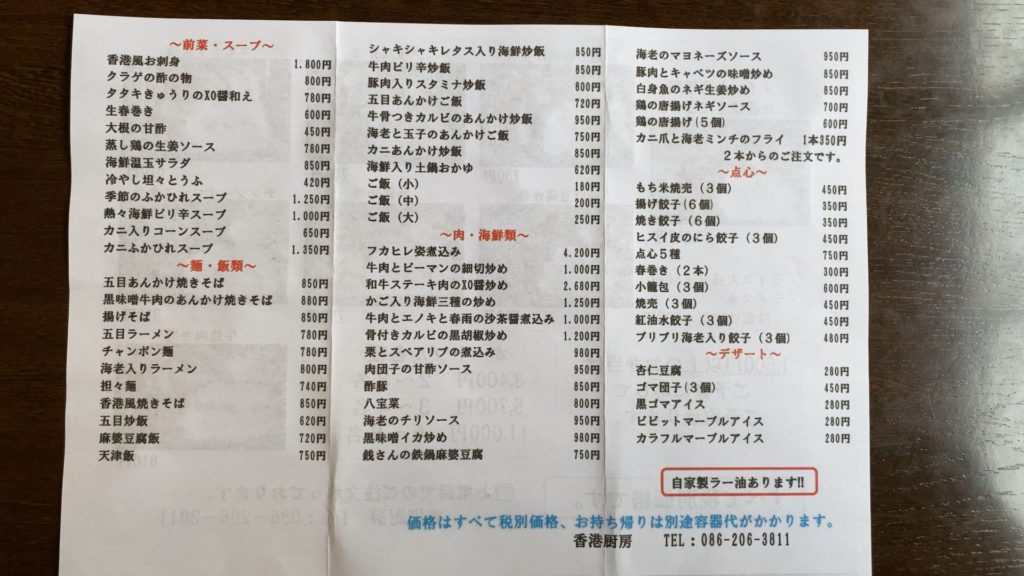 ～前菜・スープ～
香港風お刺身 1.800円
クラゲの酢の物 800円
タタキきゅうりのXO醤和え 780円
生春巻き 600円
大根の甘酢 450円
蒸し鶏の生姜ソース 780円
海鮮温玉サラダ 850円
冷やし坦々とうふ 420円
季節のふかひれスープ 1.250円
熱々海鮮ピリ辛スープ 1.000円
カニ入りコーンスープ 650円
カニふかひれスープ 1.350円
～麺・飯類～
五目あんかけ焼きそば 850円
黒味噌牛肉のあんかけ焼きそば 880円
揚げそば 850円
五目ラーメン 780円
チャンポン麺 780円
海老入りラーメン 800円
担々麺 740円
香港風焼きそば 850円
五目炒飯 620円
麻婆豆腐飯 720円
天津飯 750円
シャキシャキレタス入り海鮮炒飯 850円
牛肉ピリ辛炒飯 850円
豚肉入りスタミナ炒飯 800円
五目あんかけご飯 720円
牛骨つきカルビのあんかけ炒飯 950円
海老と玉子のあんかけご飯 750円
カニあんかけ炒飯 850円
海鮮入り土鍋おかゆ 620円
ご飯（小） 180円
ご飯（中） 200円
ご飯（大） 250円
～肉・海鮮類～
フカヒレ姿煮込み 4.200円
牛肉とピーマンの細切炒め 1.000円
和牛ステーキ肉のXO醤炒め 2.680円
かご入り海鮮三種の炒め 1.250円
牛肉とエノキと春雨の沙茶醤煮込み 1.000円
骨付きカルビの黒胡椒炒め 1.200円
栗とスペアリブの煮込み 980円
肉団子の甘酢ソース 950円
酢豚 850円
八宝菜 800円
海老のチリソース 950円
黒味噌イカ炒め 980円
銭さんの鉄鍋麻婆豆腐 750円
海老のマヨネーズソース 950円
豚肉とキャベツの味噌炒め 850円
白身魚のネギ生姜炒め 850円
鶏の唐揚げネギソース 700円
鶏の唐揚げ（５個） 600円
カニ爪と海老ミンチのフライ 1本350円
２本からのご注文です。
～点心～
もち米焼売（３個） 450円
揚げ餃子（６個） 350円
焼き餃子（６個） 350円
ヒスイ皮のにら餃子（３個） 450円
点心５種 750円
春巻き（２本） 300円
小籠包（３個） 600円
焼売（３個） 450円
紅油水餃子（３個） 450円
プリプリ海老入り餃子（３個） 480円
～デザート～
杏仁豆腐 280円
ゴマ団子（３個） 450円
黒ゴマアイス 280円
ビビットマーブルアイス 280円
カラフルマーブルアイス 280円
自家製ラー油あります!!
価格はすべて税別価格、お持ち帰りは別途容器代がかかります。
香港厨房 TEL：086-206-3811